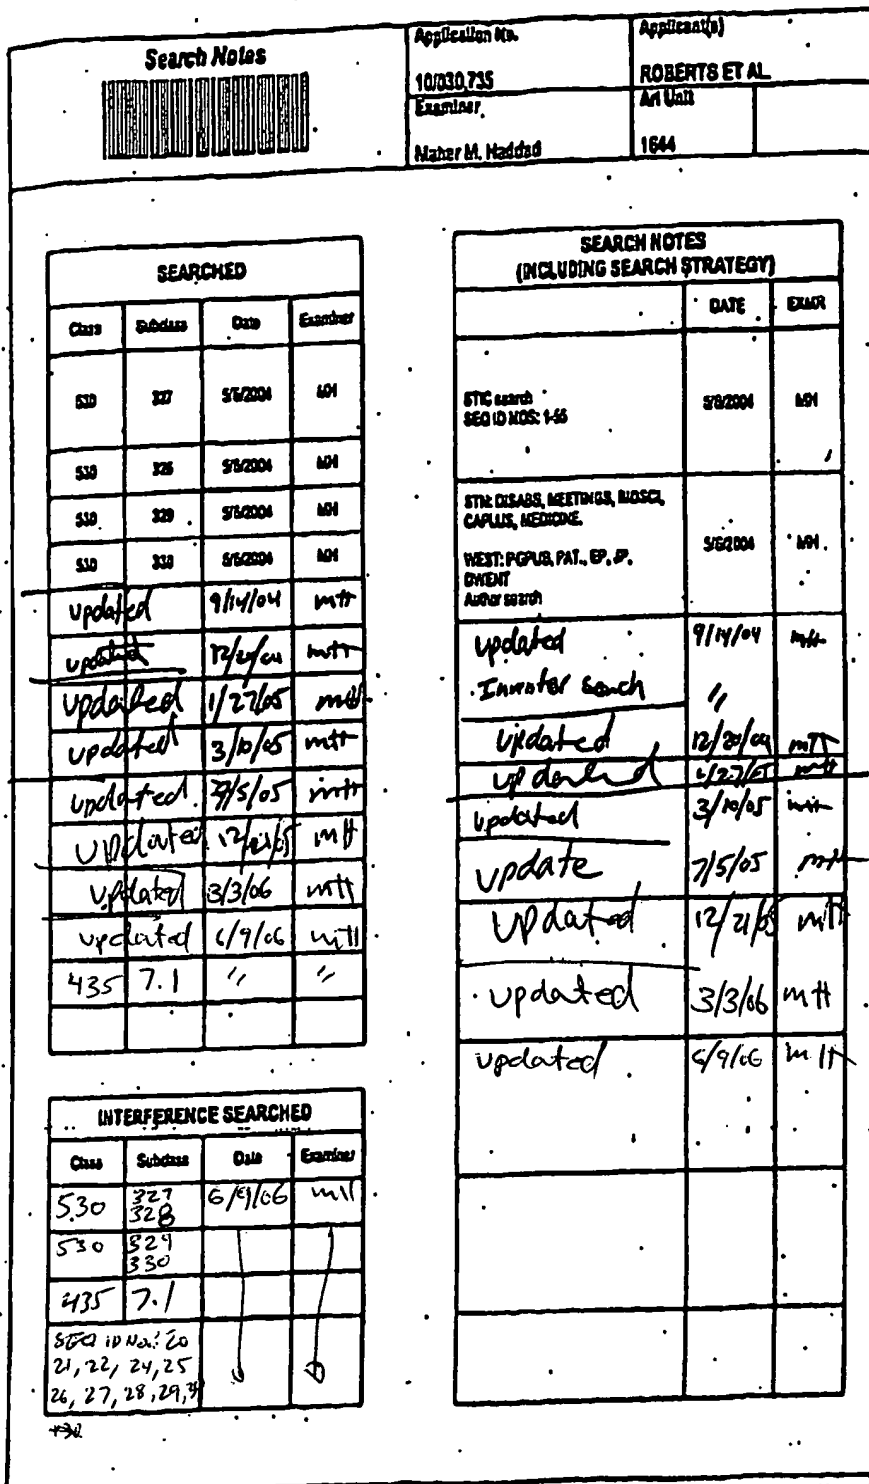 Search Notes
Application No.
Applicant(s)
10/030,735
ROBERTS ET AL.
Examiner
Art Unit
Maher M. Haddad
1644
SEARCHED
Class Subclass Date Examiner
530 327 5/6/2004 MH
530 5/6/2004 MH
530 329 5/6/2004 MH
530 330 5/6/2004 MH
updated 9/14/04 MH
updated MH
updated 1/27/05 MH
updated 3/10/05 MH
updated /5/05 MH
updated MH
updated 3/3/06 MH
updated 6/9/06 MH
435 7.1 " "
INTERFERENCE SEARCHED
Class Subclass Date Examiner
530 327 328 6/9/06 MH
530 329 330
435 7.1
SEQ ID No.: 20
21, 22, 24, 25
26, 27, 28, 29,
SEARCH NOTES
(INCLUDING SEARCH STRATEGY)
DATE EXMR
STIC search
SEQ ID NOS: 1-55
5/6/2004 MH
STN: DISABS, MEETINGS, BIOSCI,
CAPLUS, MEDICINE.
5/6/2004 MH
WEST: PGPUB, PAT., EP, JP,
DWENT
Author search
updated 9/14/04 MH
Inventor Search "
updated 12/20/04 MH
updated 1/27/05 MH
updated 3/10/05 MH
update 7/5/05 MH
updated 12/21/05 MH
updated 3/3/06 MH
updated 6/9/06 MH